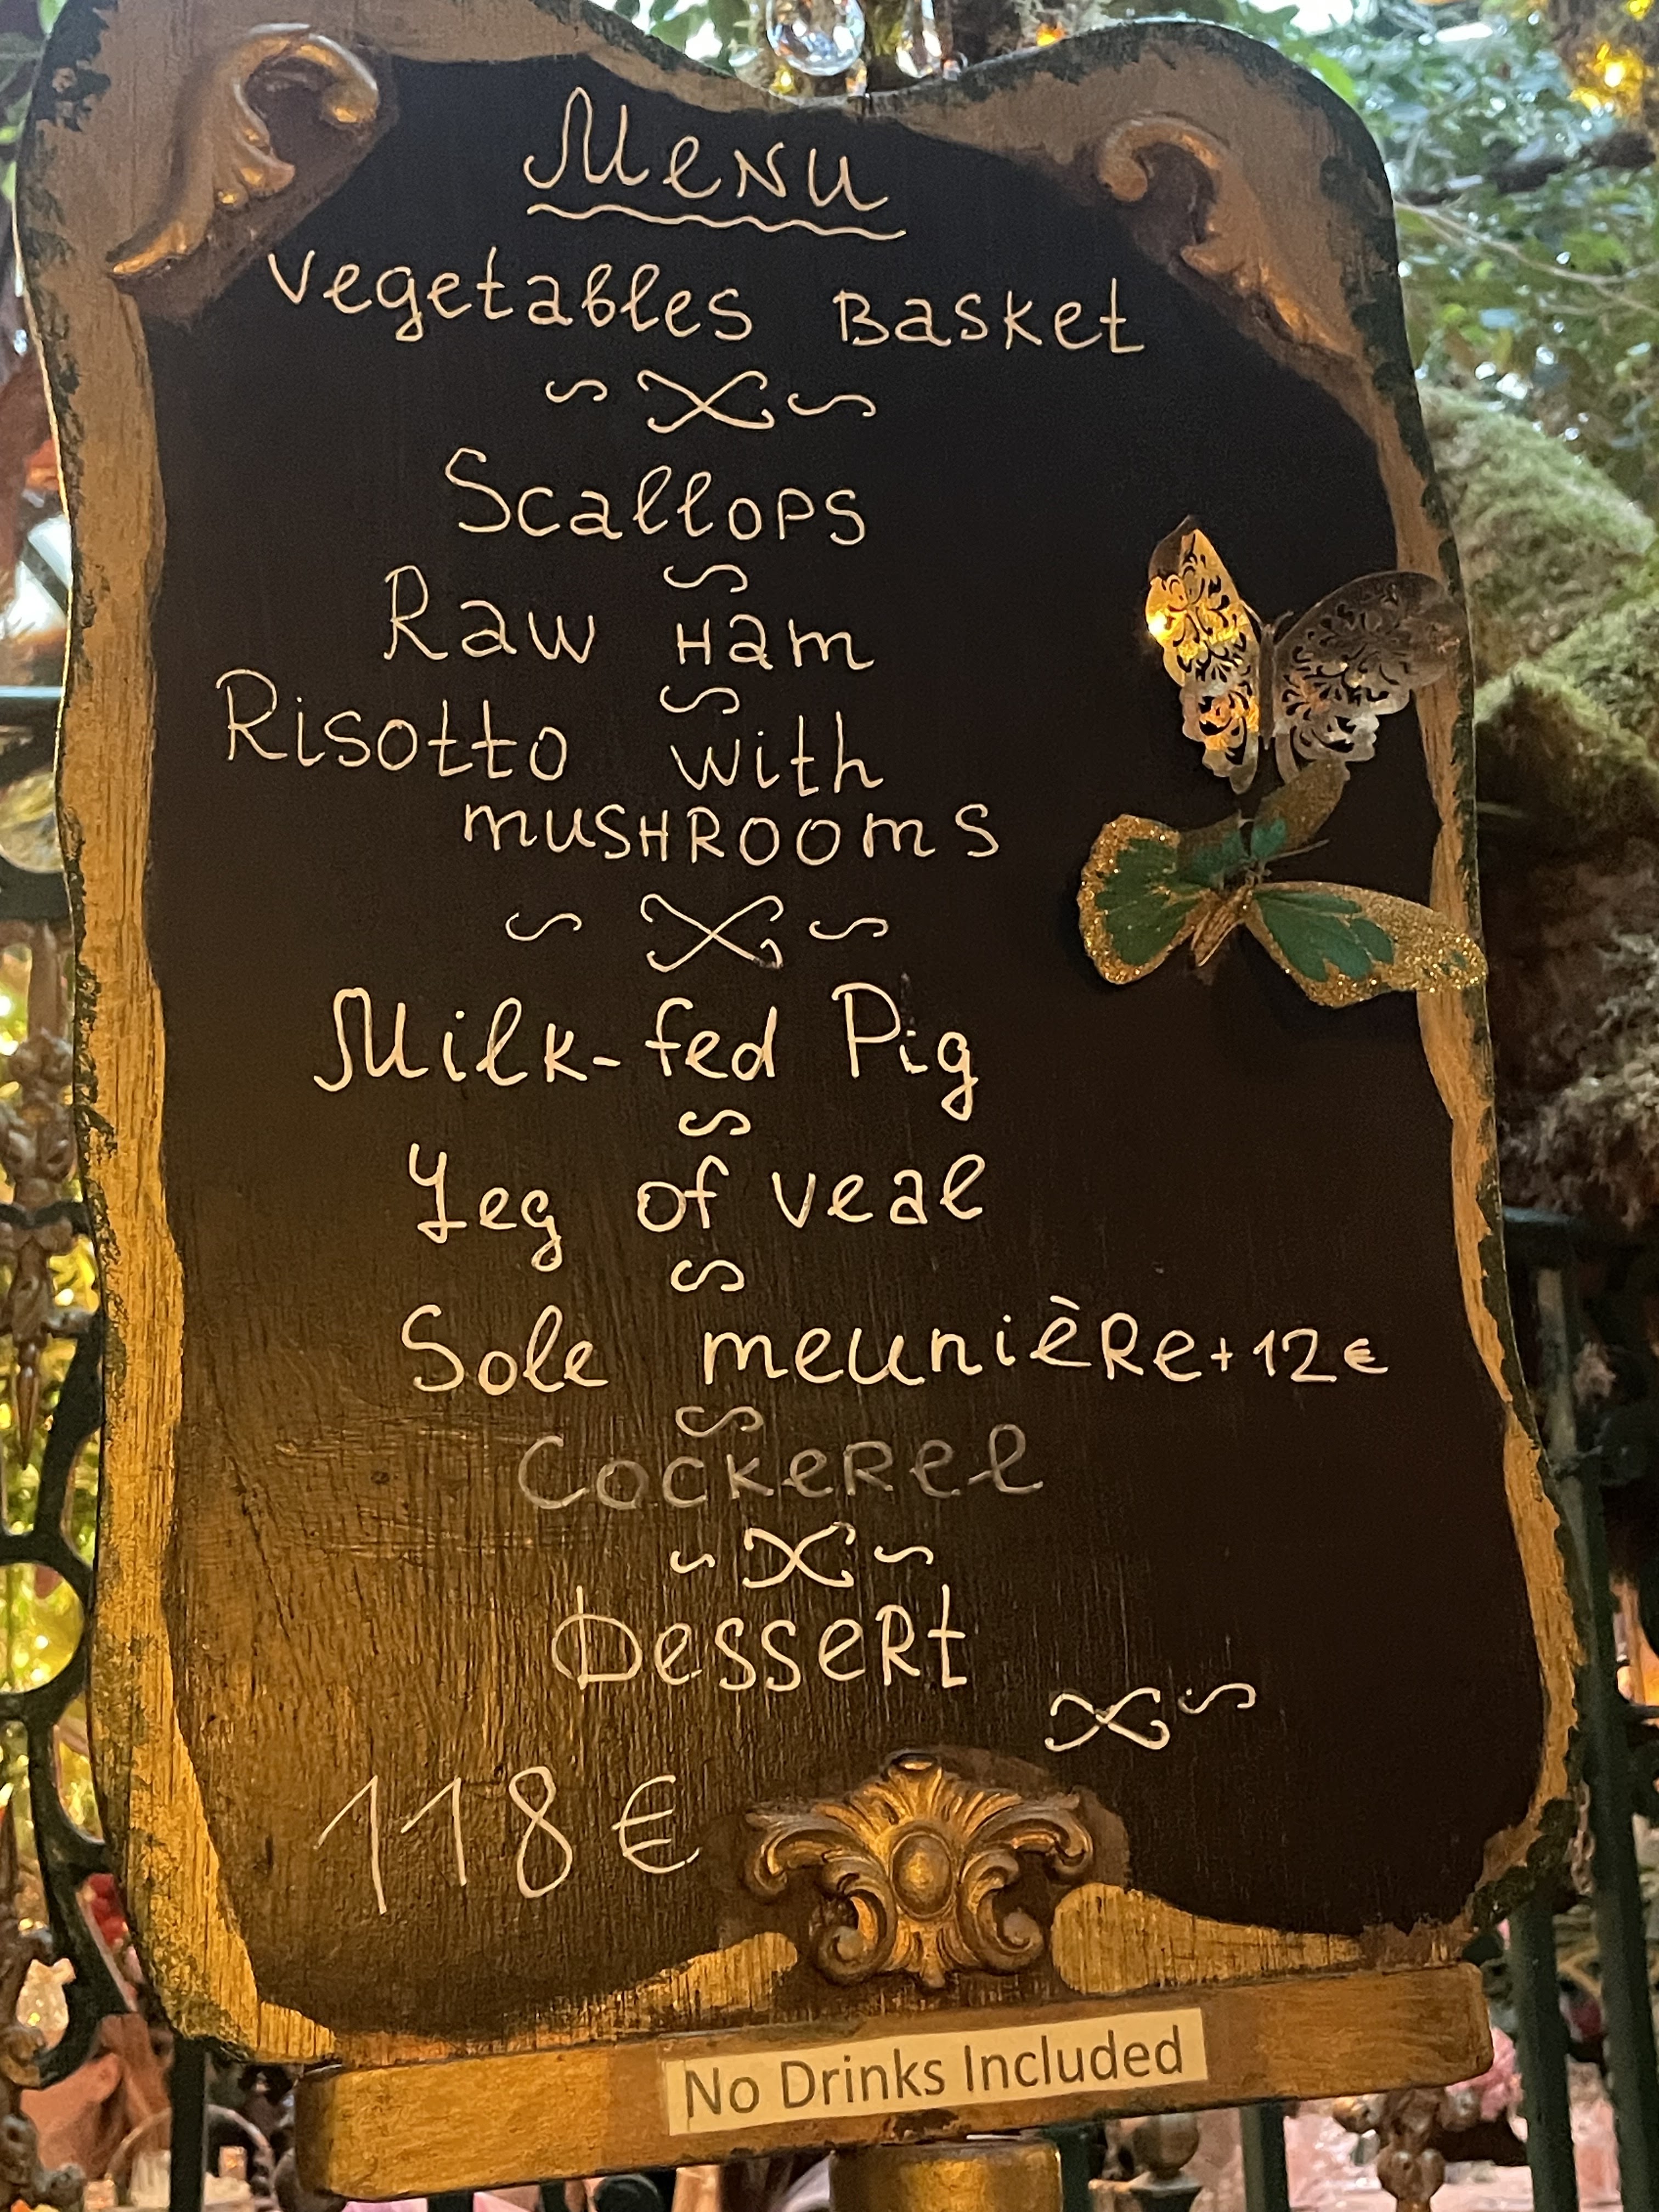 Menu
Vegetables Basket
Scallops
Raw Ham
Risotto with
mushrooms
Milk-fed Pig
Leg of veal
Sole meunière + 12€
Cockerel
Dessert
118 €
No Drinks Included